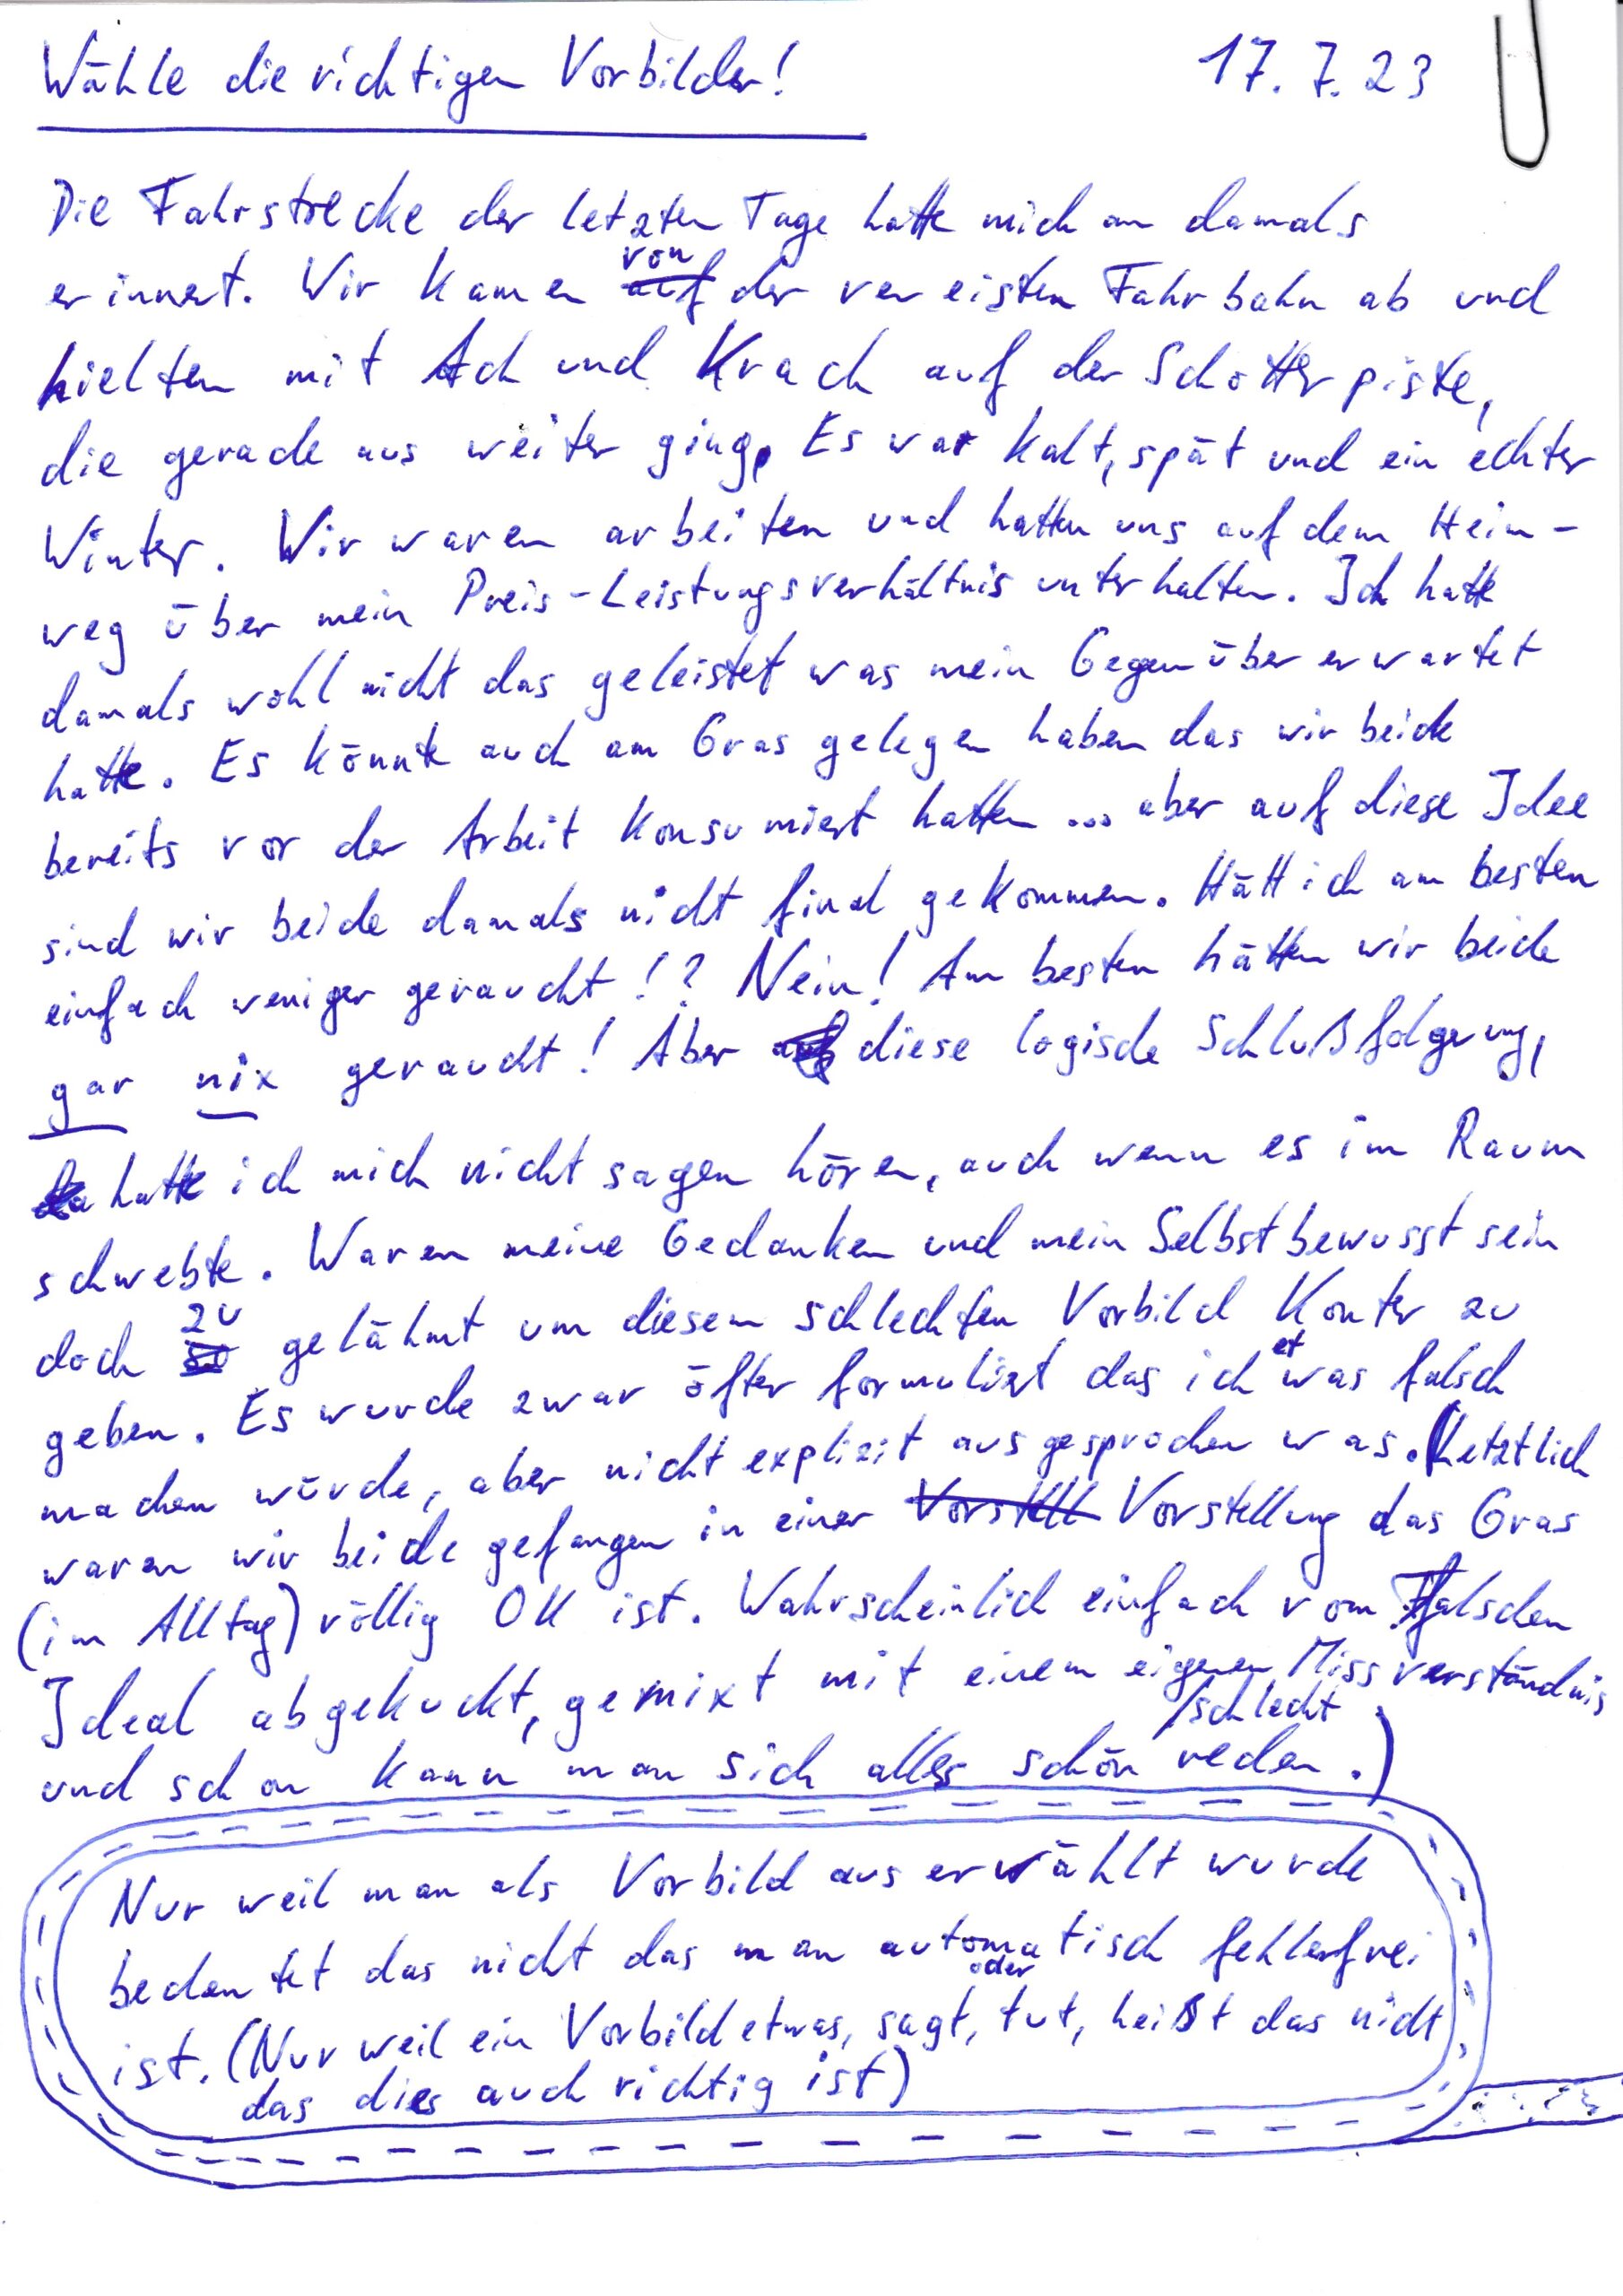 Wähle die richtigen Vorbilder! 17.7.23
Die Fahrstrecke der letzten Tage hatte mich an damals
erinnert. Wir kamen von der vereisten Fahrbahn ab und
hielten mit Ach und Krach auf der Schotterpiste,
die gerade aus weiter ging. Es war kalt, spät und ein echter
Winter. Wir waren arbeiten und hatten uns auf dem Heim-
weg über mein Preis-Leistungsverhältnis unterhalten. Ich hatte
damals wohl nicht das geleistet was mein Gegenüber erwartet
hatte. Es könnte auch am Gras gelegen haben das wir beide
bereits vor der Arbeit konsumiert hatten ... aber auf diese Idee
sind wir beide damals nicht final gekommen. Hätt ich am besten
einfach weniger geraucht!? Nein! Am besten hätten wir beide
gar nix geraucht! Aber diese logische Schlußfolgerung,
hatte ich mich nicht sagen hören, auch wenn es im Raum
schwebte. Waren meine Gedanken und mein Selbstbewusstsein
doch zu gelähmt um diesem schlechten Vorbild Konter zu
geben. Es wurde zwar öfter formuliert das ich etwas falsch
machen würde, aber nicht explizit ausgesprochen was. (Letztlich
waren wir beide gefangen in einer Vorstellung das Gras
(im Alltag) völlig OK ist. Wahrscheinlich einfach vom falschen
Ideal abgekuckt, gemixt mit einem eigenen Missverständnis
und schon kann man sich alles schön/schlecht reden.)
Nur weil man als Vorbild auserwählt wurde
bedeutet das nicht das man automatisch fehlerfrei
ist. (Nur weil ein Vorbild etwas, sagt, oder tut, heißt das nicht
das dies auch richtig ist)